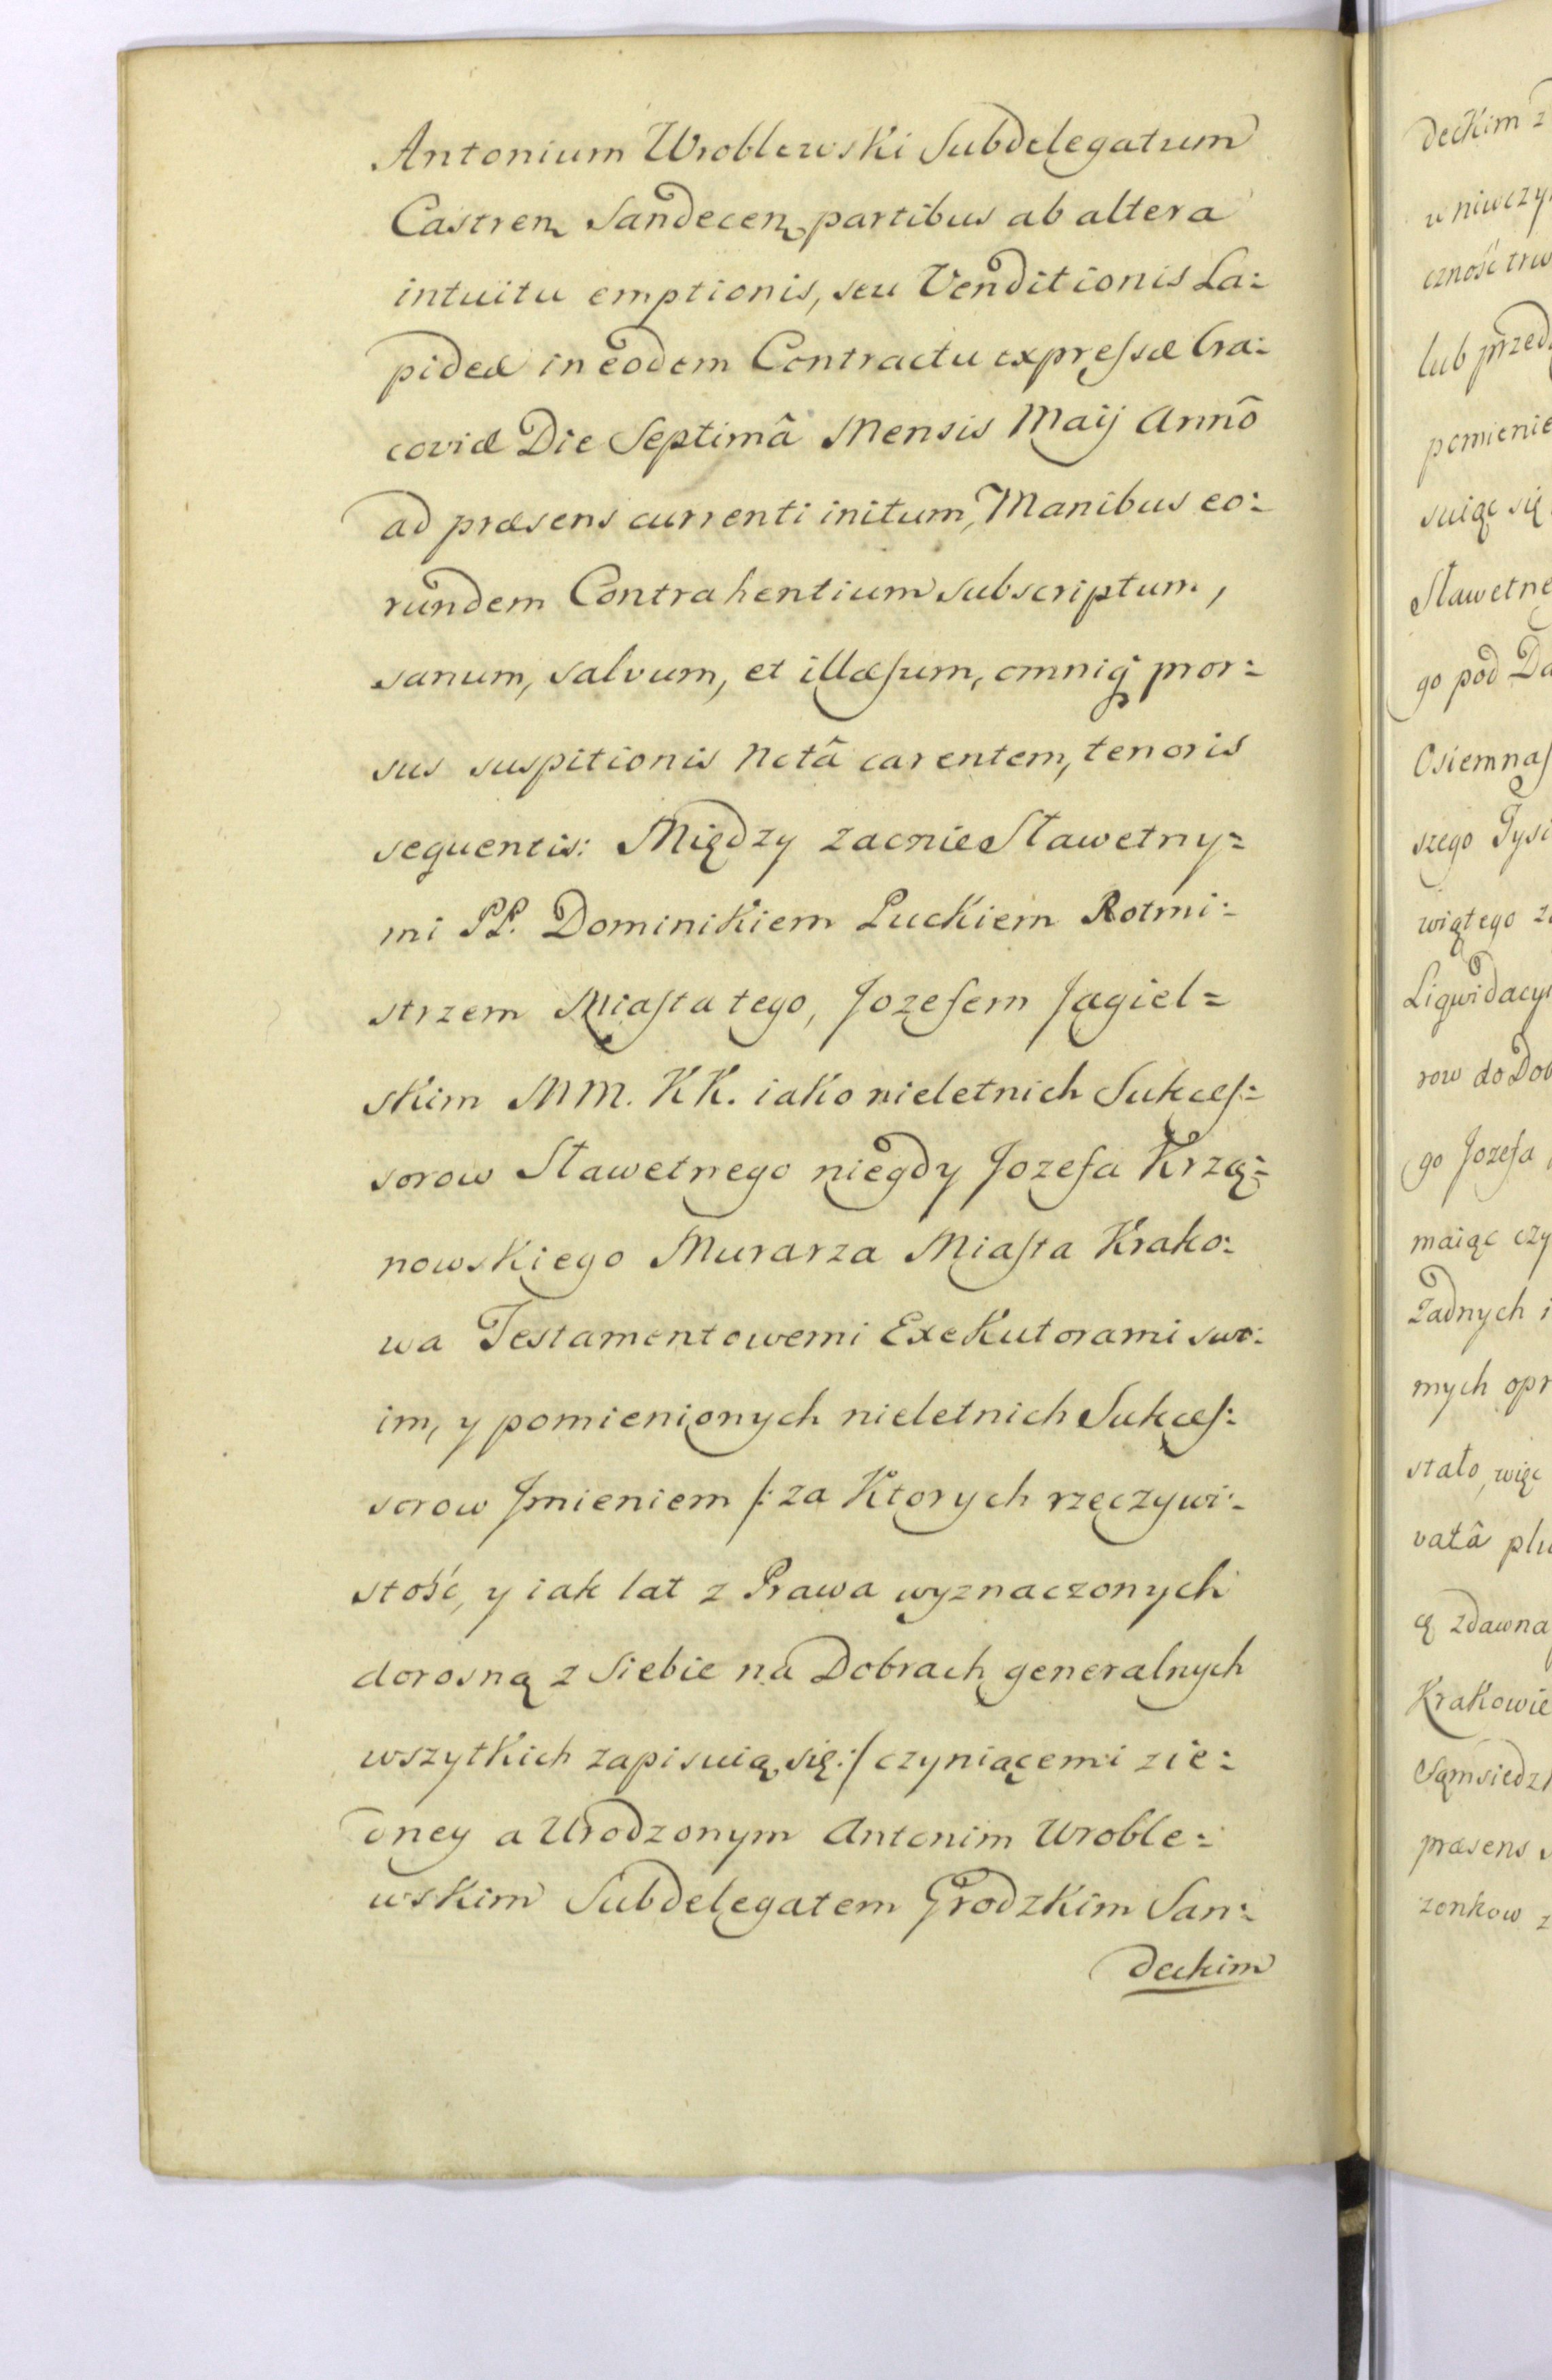 Antonium Wroblewski Subdelegatum
Castren Sandecen partibus ab altera
intuitu emptionis, seu Venditionis La:
pideæ in eodem Contractu expressæ Cra:
coviæ Die Septimâ Mensis Maij Annô
ad præsens currenti initum, Manibus eo:
rundem Contrahentium subscriptum,
sanum, salvum, et illæsum, omniq́ pror:
sus suspitionis Notâ carentem, tenoris
sequentis: Między zacnie Sławetny=
mi PP. Dominikiem Puckiem Rotmi:
strzem Miasta tego, Jozefem Jagiel=
skim MM. KK. iako nieletnich Sukces:
sorow Sławetnego niegdy Jozefa Krzą:
nowskiego Murarza Miasta Krako:
wa Testamentowemi Exekutorami swo:
im, y pomienionych nieletnich Sukces:
sorow Jmieniem /: za Ktorych rzeczywi:
stość, y iak lat z Prawa wyznaczonych
dorosną z Siebie na Dobrach generalnych
wszytkich zapisuią się :/ czyniącemi z ie:
dney a Urodzonym Antonim Wroble:
wskim Subdelegatem Grodzkim San:
deckim
deckim z
wniwczy
czność trw
lub przed
pomienie
suiąc się
Sławetne
go pod Da
Osiemnas
szego Tysi
wiątego z
Liqwidacyi
row do Dob
go Jozefa
maiąc czy
Żadnych i
mych opr
stało, więc
vatâ plu
ą zdawna
Krakowie
Sąmsiedz
præsens
zonkow z